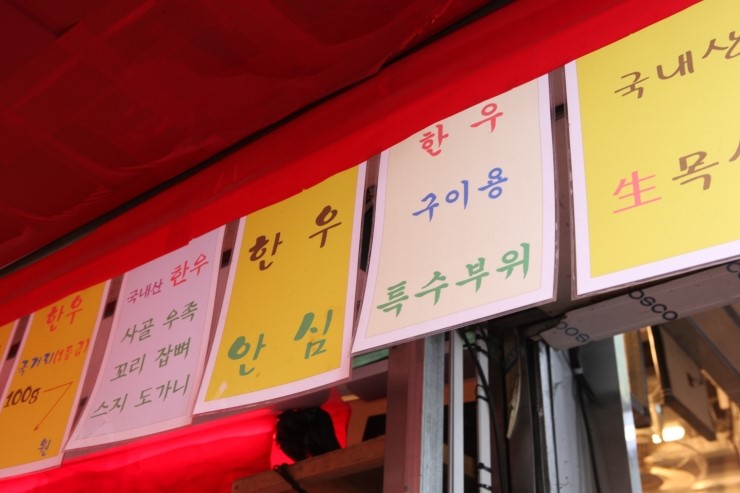 한우
국거리(1등급)
100g
원
국내산 한우
사골 우족
꼬리 잡뼈
스지 도가니
한우
안심
한우
구이용
특수부위
국내산
生목
beco